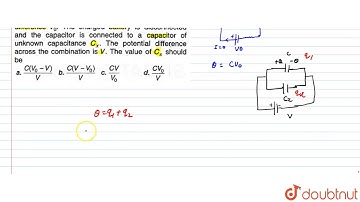 difference V₀. The charged battery is disconnected
and the capacitor is connected to a capacitor of
unknown capacitance Cₓ. The potential difference
across the combination is V. The value of Cₓ should
be
a. C(V₀ − V)/V b. C(V − V₀)/V c. CV/V₀ d. CV₀/V
I=0 V0
θ = CV₀
C
+θ -θ q₁
C2 q2
V
θ = q₁ + q₂
doubtnut